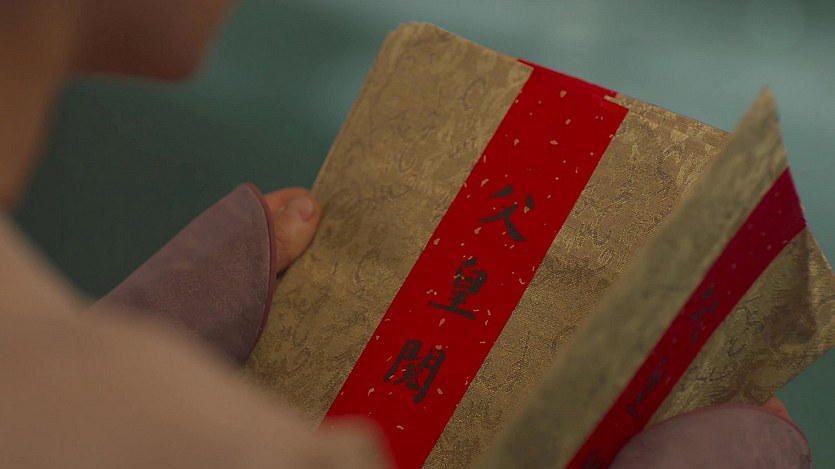 父皇閱